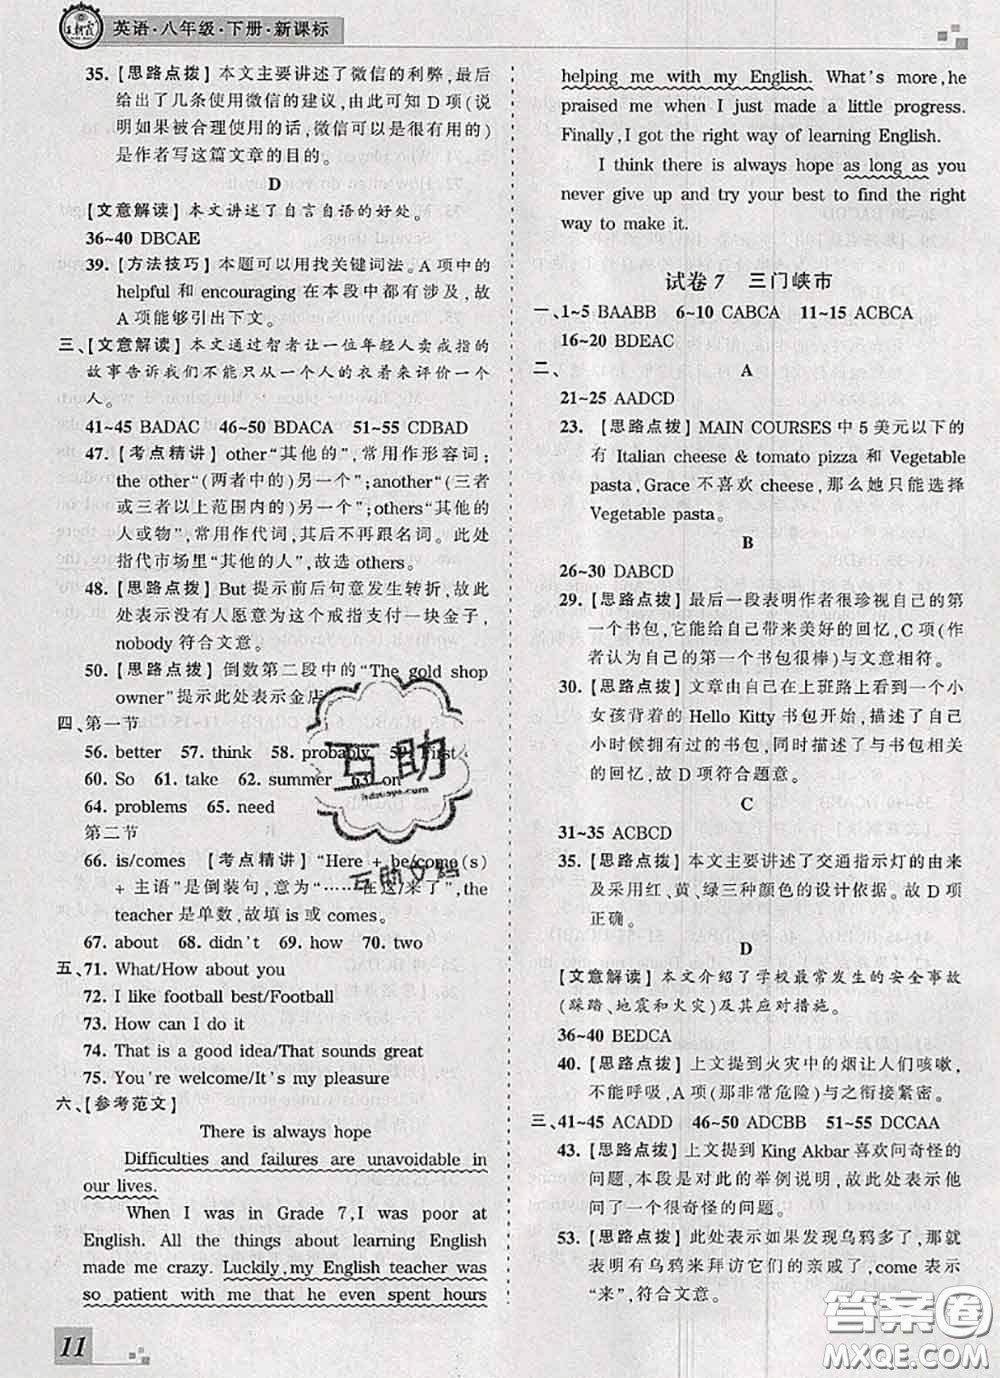 英语·八年级·下册·新课标
35. 【思路点拨】本文主要讲述了微信的利弊,最后
给出了几条使用微信的建议,由此可知 D 项(说
明如果被合理使用的话,微信可以是很有用的)
是作者写这篇文章的目的。
D
【文意解读】本文讲述了自言自语的好处。
36~40 DBCAE
39. 【方法技巧】本题可以用找关键词法。A 项中的
helpful 和 encouraging 在本段中都有涉及,故
A 项能够引出下文。
三、【文意解读】本文通过智者让一位年轻人卖戒指的
故事告诉我们不能只从一个人的衣着来评价一个
人。
41~45 BADAC 46~50 BDACA 51~55 CDBAD
47. 【考点精讲】other“其他的”,常用作形容词;
the other“(两者中的)另一个”;another“(三者
或三者以上范围内的)另一个”;others“其他的
人或物”,常用作代词,其后不再跟名词。此处
指代市场里“其他的人”,故选 others。
48. 【思路点拨】But 提示前后句意发生转折,故此
处表示没有人愿意为这个戒指支付一块金子,
nobody 符合文意。
50. 【思路点拨】倒数第二段中的“The gold shop
owner”提示此处表示金店
四、第一节
56. better 57. think 58. probably 59. First
60. So 61. take 62. summer 63. on
64. problems 65. need
第二节
66. is/comes 【考点精讲】“Here + be/come(s)
+ 主语”是倒装句,意为“……在这/来了”,the
teacher 是单数,故填 is 或 comes。
67. about 68. didn't 69. how 70. two
五、71. What/How about you
72. I like football best/Football
73. How can I do it
74. That is a good idea/That sounds great
75. You're welcome/It's my pleasure
六、【参考范文】
There is always hope
Difficulties and failures are unavoidable in
our lives.
When I was in Grade 7,I was poor at
English. All the things about learning English
made me crazy. Luckily,my English teacher was
so patient with me that he even spent hours
11
helping me with my English. What's more,he
praised me when I just made a little progress.
Finally,I got the right way of learning English.
I think there is always hope as long as you
never give up and try your best to find the right
way to make it.
试卷 7 三门峡市
一、1~5 BAABB 6~10 CABCA 11~15 ACBCA
16~20 BDEAC
二、 A
21~25 AADCD
23. 【思路点拨】MAIN COURSES 中 5 美元以下的
有 Italian cheese & tomato pizza 和 Vegetable
pasta,Grace 不喜欢 cheese,那么她只能选择
Vegetable pasta。
B
26~30 DABCD
29. 【思路点拨】最后一段表明作者很珍视自己的第
一个书包,它能给自己带来美好的回忆,C 项(作
者认为自己的第一个书包很棒)与文意相符。
30. 【思路点拨】文章由自己在上班路上看到一个小
女孩背着的 Hello Kitty 书包开始,描述了自己
小时候拥有过的书包,同时描述了与书包相关
的回忆,故 D 项符合题意。
C
31~35 ACBCD
35. 【思路点拨】本文主要讲述了交通指示灯的由来
及采用红、黄、绿三种颜色的设计依据。故 D 项
正确。
D
【文意解读】本文介绍了学校最常发生的安全事故
(踩踏、地震和火灾)及其应对措施。
36~40 BEDCA
40. 【思路点拨】上文提到火灾中的烟让人们咳嗽,
不能呼吸,A 项(那非常危险)与之衔接紧密。
三、41~45 ACADD 46~50 ADCBB 51~55 DCCAA
43. 【思路点拨】上文提到 King Akbar 喜欢问奇怪的
问题,本段是对此的举例说明,故此处表示他
问了一个很奇怪的问题。
53. 【思路点拨】此处表示如果发现乌鸦多了,则表
明有乌鸦来拜访它们的亲戚了,come 表示
“来”,符合文意。
互助
hdzuoye.com
互助文档
答案圈
MXQE.COM